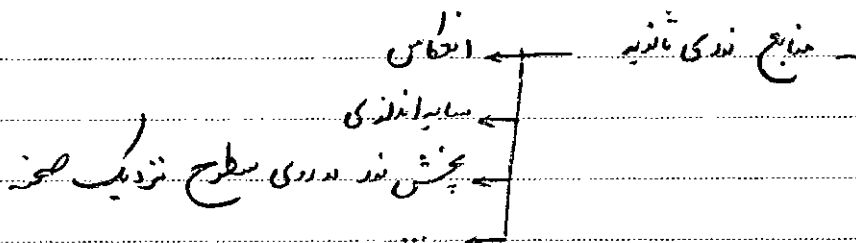 - منابع نوری ثانویه ← انعکاس
← سایه اندازی
← پخش نور بر روی سطوح نزدیک صحنه
← ...